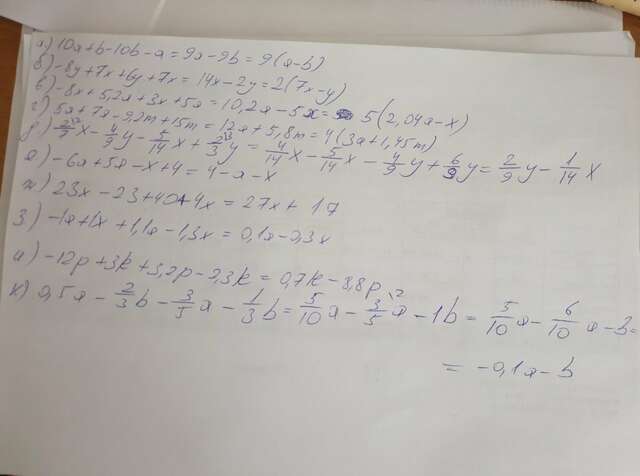 а) 10a+b-10b-a=9a-9b=9(a-b)
б) -8y+7x+6y+7x=14x-2y=2(7x-y)
в) -8x+5,2a+3x+5a=10,2a-5x= 5(2,04a-x)
г) 5a+7a-9,2m+15m=12a+5,8m=4(3a+1,45m)
д) 2/7x-4/9y-5/14x+2/3y=4/14x-5/14x-4/9y+6/9y=2/9y-1/14x
е) -6a+5a-x+4=4-a-x
ж) 23x-23+40+4x=27x+17
з) -1a+1x+1,1a-1,3x=0,1a-0,3x
и) -12p+3k+3,2p-2,3k=0,7k-8,8p
к) 0,5a-2/3b-3/5a-1/3b=5/10a-3/5a-1b=5/10a-6/10a-b=
=-0,1a-b